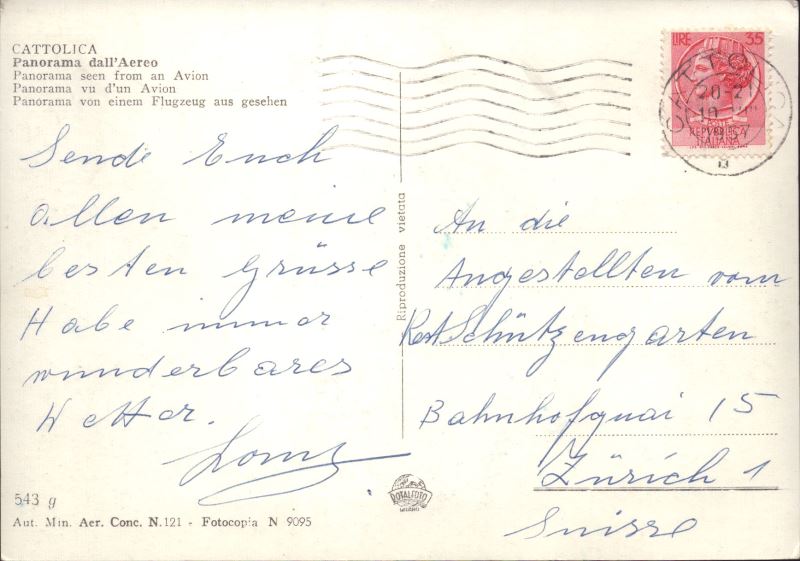 CATTOLICA
Panorama dall'Aereo
Panorama seen from an Avion
Panorama vu d'un Avion
Panorama von einem Flugzeug aus gesehen
Sende Euch
allen meine
besten Grüsse
Habe immer
wunderbares
Wetter.
543 g
Aut. Min. Aer. Conc. N.121 - Fotocopia N 9095
Riproduzione vietata
ROTALFOTO
MILANO
LIRE 35
POSTE
REPVBBLICA
ITALIANA
CATTOLICA
20-21
An die
Angestellten vom
Rest Schützengarten
Bahnhofquai 15
Zürich 1
Suisse